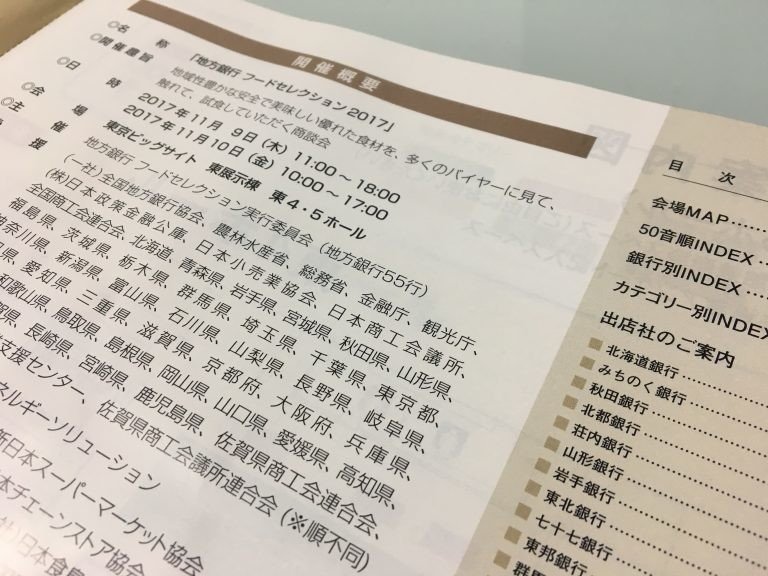 開催概要
◎名 称 「地方銀行 フードセレクション2017」
◎開催趣旨 地域性豊かな安全で美味しい優れた食材を、多くのバイヤーに見て、
触れて、試食していただく商談会
◎日 時 2017年11月 9日(木) 11:00～18:00
2017年11月10日(金) 10:00～17:00
◎会 場 東京ビッグサイト 東展示棟 東4・5ホール
◎主 催 地方銀行 フードセレクション実行委員会(地方銀行55行)
援 (一社)全国地方銀行協会、農林水産省、総務省、金融庁、観光庁、
(株)日本政策金融公庫、日本小売業協会、日本商工会議所、
全国商工会連合会、北海道、青森県、岩手県、宮城県、秋田県、山形県、
福島県、茨城県、栃木県、群馬県、埼玉県、千葉県、東京都、
神奈川県、新潟県、富山県、石川県、山梨県、長野県、岐阜県、
愛知県、三重県、滋賀県、京都府、大阪府、兵庫県、
和歌山県、鳥取県、島根県、岡山県、山口県、愛媛県、高知県、
長崎県、宮崎県、鹿児島県、佐賀県商工会連合会、
支援センター、佐賀県商工会議所連合会(※順不同)
ネルギーソリューション
新日本スーパーマーケット協会
本チェーンストア協会
日本食
目 次
会場MAP
50音順INDEX
銀行別INDEX
カテゴリー別INDEX
出店社のご案内
■北海道銀行
■みちのく銀行
■秋田銀行
■北都銀行
■荘内銀行
■山形銀行
■岩手銀行
■東北銀行
■七十七銀行
■東邦銀行
群馬